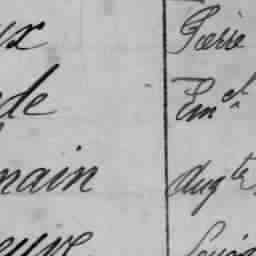 ux Pierre
de Em^el
main Aug^te
euve